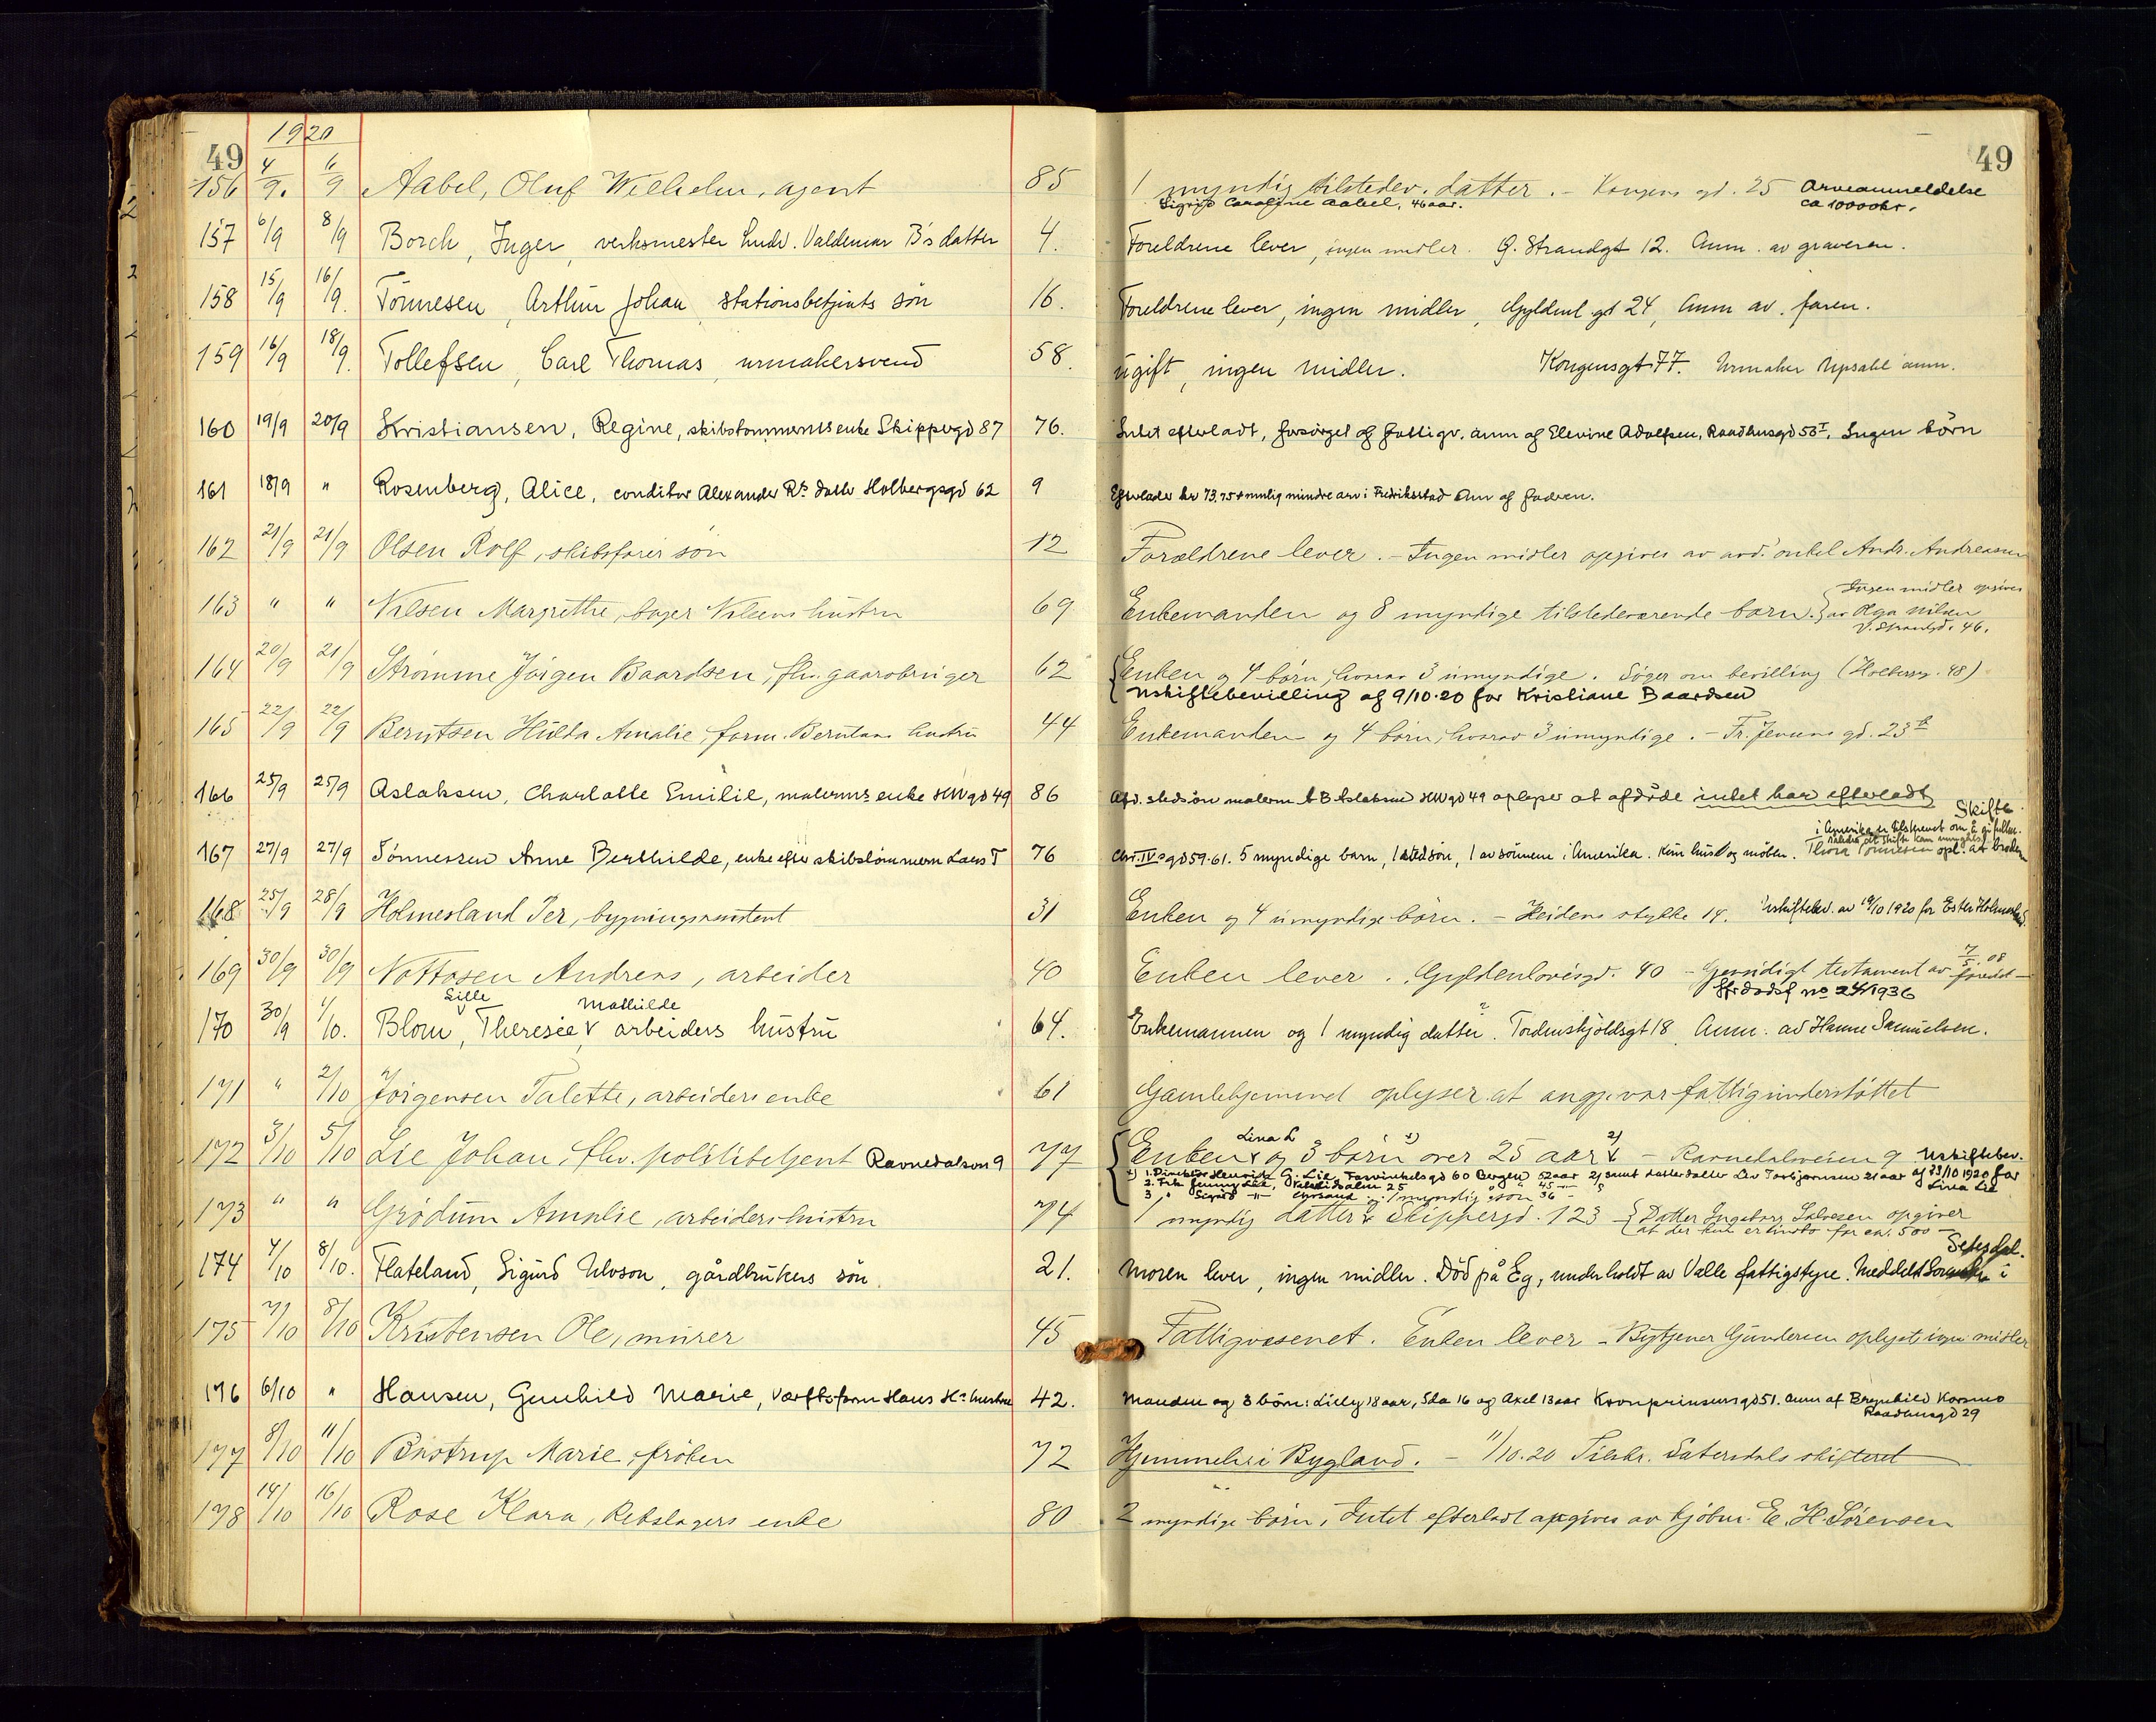 49 1920 49
156 4/9. 6/9 Aabel, Oluf Wilhelm, agent 85 1 myndig tilstedev. datter. - Kongens gd. 25 Arveanmeldelse
Sigrid Caroline Aabel, 46 aar. ca 10000 kr.
157 6/9 8/9 Borch, Inger, verksmester Ludv. Valdemar B's datter 4. Foreldrene lever, ingen midler. Ø. Strandgt 12. Anm. av graveren.
158 15/9 16/9. Tönnesen, Arthur Johan, stationsbetjents sön 16. Foreldrene lever, ingen midler, Gyldenl. gt 24, Anm av. faren.
159 16/9 18/9. Tollefsen, Carl Thomas, urmakersvend 58. ugift, ingen midler. Kongensgt 77. Urmaker Upsahl anm.
160 19/9 20/9 Kristiansen, Regine, skibstømmermands enke Skippergd 87 76. Intet efterladt, forsørget af fattigv. anm af Elevine Adolfsen, Raadhusgd 53 I. Ingen børn
161 18/9 " Rosenberg, Alice, conditor Alexander Rs datter Holbergsgd 62 9 Efterlader kr 73.75 + mulig mindre arv i Fredriksstad Anm af faderen.
162 21/9 21/9 Olsen Rolf, skibsfører søn 12 Forældrene lever. - Ingen midler opgives av avd. onkel Andr. Andreassen
163 " " Nilsen Margrethe, bager Nilsens hustru 69 Enkemanden og 8 myndige tilstedeværende barn. Ingen midler opgives
av Olga Nilsen
V. Strandgd. 46.
164 20/9 21/9 Strømme Jørgen Baardsen, fhv. gaardbruger 62 Enken og 4 børn, hvorav 3 umyndige. Søger om bevilling (Holbergg. 48)
Uskiftebevilling af 9/10.20 for Kristiane Baardsen
165 22/9 22/9 Berntsen Hulda Amalie, form. Berntsens hustru 44 Enkemanden og 4 børn, hvorav 3 umyndige. - Fr. Jensens gd. 23 b
166 25/9 25/9 Aslaksen, Charlotte Emilie, malermrs enke HWgd 49 86 Afd. stedsøn malerm A B Aslaksen HWgd 49 oplyser at afdøde intet har efterladt
Skifte
i Amerika er tilskrevet om å gi fullm.
167 27/9 27/9 Tönnessen Anne Berthilde, enke efter skibstømmerm Lars T 76 Chr. IVs gd 59.61. 5 myndige barn, 1 stedsøn, 1 av sönnene i Amerika. Kun hus og møbler. Thora Tönnesen opl. at broder
168 25/9 28/9 Holmesland Per, bygningsassistent 31 Enken og 4 umyndige børn. - Heidens stykke 14. Uskiftebev. av 19/10 1920 for Ester Holmesland
169 30/9 30/9 Nottosen Andreas, arbeider 40 Enken lever. Gyldenløvesgd. 40 - Gjensidigt testament av 7/5.08
no 24/1936
170 30/9 1/10. Blom, Sille Theresie Mathilde arbeiders hustru 64. Enkemannen og 1 myndig datter. Tordenskjoldsgt 18. Anm. av Hanne Samuelsen.
171 " 2/10 Jørgensen Talette, arbeiders enke 61 Gamlehjemmet oplyser at angj. var fattigunderstøttet
172 3/10 5/10 Lie Johan, fhv. politibetjent Ravnedalsvn 9 77 Enken Lina L og 3 børn 1) over 25 aar 2) - Ravnedalsveien 9 Uskiftebev.
1) 1. Direktør Henrik G. Lie, Fosswinkelsgd 60 Bergen 52 aar 2) samt datterdatter Liv Torbjørnsen 21 aar af 23/10 1920 for
2. Frk Jenny Lie, 25 45 - Lina Lie
3 " Sigurd -"- Chrsand 36 -
173 " " Grødum Amalie, arbeiders hustru 74 1 myndig datter & 1 myndig søn Skippergd. 123 - Datter Ingeborg Salvesen opgiver
at der kun er indbo for ca. 500 -
174 4/10 8/10. Flateland, Sigurd Ulvson, gårdbrukers sön. 21. Moren lever, ingen midler. Död på Eg, underholdt av Valle fattigstyre. Meddelt Sorenskr. i Setesdal.
175 7/10 8/10 Kristensen Ole, murer 45 Fattigvæsenet. Enken lever - Bytjener Gundersen oplyst, ingen midler
176 6/10 " Hansen, Gunhild Marie, værftsform Hans Hs hustru 42. Manden og 3 børn: Lilly 18 aar, Ida 16 og Axel 13 aar Kronprinsensgd 51. Anm af Brynhild Korsmo
Raadhusgd 29
177 8/10 11/10 Bustrup Marie, frøken 72 Hjemmeh. i Bygland. - 11/10.20 Tilskr. Sætersdals skifteret
178 14/10 16/10 Rose Klara, Rebslagers enke 80 2 myndige børn, Intet efterladt opgives av kjøbm. E. H. Sørensen